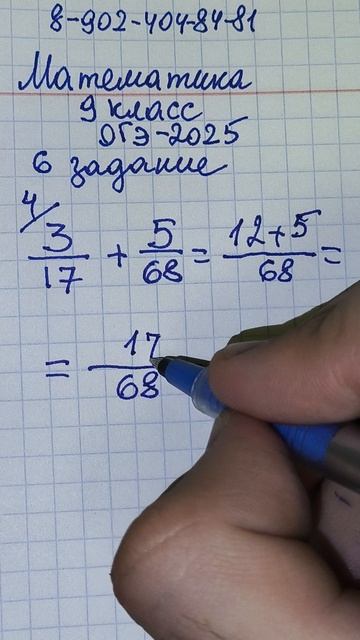 8-902-404-84-81
Математика
9 класс
ОГЭ-2025
6 задание
4/
3/17 + 5/68 = 12+5/68 =
= 17/68